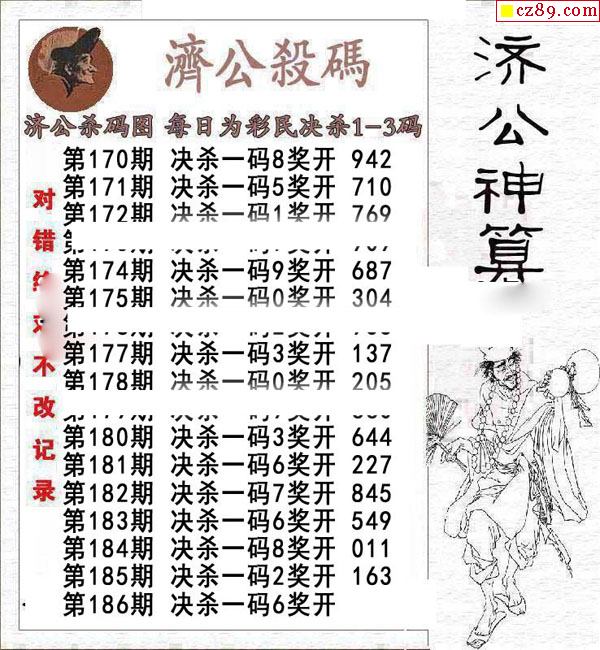 cz89.com
濟公殺碼
济公杀码图 每日为彩民决杀1-3码
第170期 决杀一码8奖开 942
第171期 决杀一码5奖开 710
第172期 决杀一码1奖开 769
第174期 决杀一码9奖开 687
第175期 决杀一码0奖开 304
第177期 决杀一码3奖开 137
第178期 决杀一码0奖开 205
第180期 决杀一码3奖开 644
第181期 决杀一码6奖开 227
第182期 决杀一码7奖开 845
第183期 决杀一码6奖开 549
第184期 决杀一码8奖开 011
第185期 决杀一码2奖开 163
第186期 决杀一码6奖开
对错
不改记录
济公神算